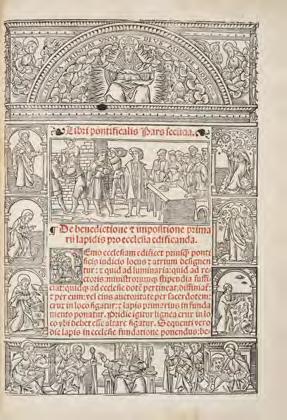 Libri pontificalis Pars secūda.
De benedictione ⁊ impositione prima
rii lapidis pro ecclesia edificanda.
NEmo ecclesiam edificet priusq̃ ponti
ficis iudicio locus ⁊ atrium designen
tur: ⁊ quid ad luminaria: quid ad re
ctoris ministrorumq̃ stipendia suffi
ciat: quidq̃ ad ecclesie dotē pertineat: diffiniat̃:
⁊ per eum: vel eius auctoritate per sacerdotem:
crux in loco figatur: ⁊ lapis primarius in funda
mento ponatur. Pridie igitur lignea crux in lo
co vbi debet esse altare figatur. Sequenti vero
die lapis in ecclesie fundatione ponendus: be-